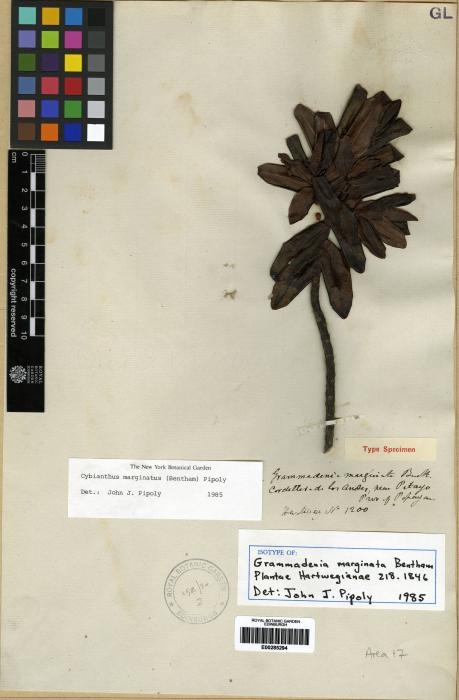 GL
cm
0 1 2 3 4 5 6 7 8 9 10
copyright reserved
Type Specimen
Grammadenia marginata Benth.
Cordillera de los Andes, near Pitayo
Prov. of Popayan
Hartweg No 1200
The New York Botanical Garden
Cybianthus marginatus (Bentham) Pipoly
Det.: John J. Pipoly 1985
ISOTYPE OF:
Grammadenia marginata Bentham
Plantae Hartwegianae 218. 1846
Det: John J. Pipoly 1985
ROYAL BOTANIC GARDEN
EDINBURGH
ROYAL BOTANIC GARDEN
EDINBURGH
E00285294
Area 17